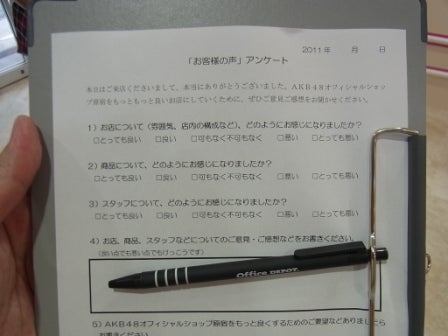 2011年　　月　　日
「お客様の声」アンケート
本日はご来店くださいまして、本当にありがとうございました。AKB48オフィシャルショッ
プ原宿をもっともっと良いお店にしていくために、ぜひご意見ご感想をお聞かせください。
1）お店について（雰囲気、店内の構成など）、どのようにお感じになりましたか？
□とっても良い　□良い　□可もなく不可もなく　□悪い　□とっても悪い
2）商品について、どのようにお感じになりましたか？
□とっても良い　□良い　□可もなく不可もなく　□悪い　□とっても悪い
3）スタッフについて、どのようにお感じになりましたか？
□とっても良い　□良い　□可もなく不可もなく　□悪い　□とっても悪い
4）お店、商品、スタッフなどについてのご意見・ご感想などをお書きください。
（良い点でも悪い点でもけっこうです）
Office DEPOT.
5）AKB48オフィシャルショップ原宿をもっと良くするためのご要望などありましたら
お書きください